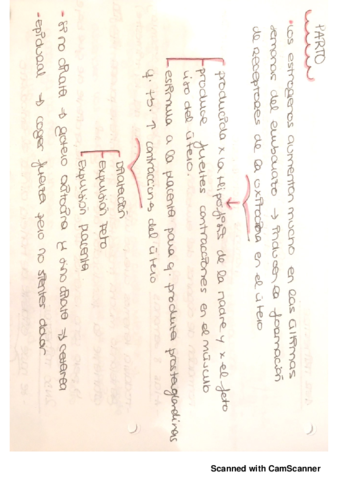 PARTO
• Los estrógenos aumentan mucho en las últimas
semanas del embarazo → inducen la formación
de receptores de la oxitocina en el útero
producida x la hipófisis de la madre y x el feto
- produce fuertes contracciones en el músculo
liso del útero.
- estimula a la placenta para q. produzca prostaglandinas
q. tb. ↑ contracciones del útero
Dilatación
Expulsión feto
Expulsión placenta
- Si no dilata → gotero oxitocina y sino dilata → cesárea
- epidural → coger fuerza pero no sientes dolor
Scanned with CamScanner